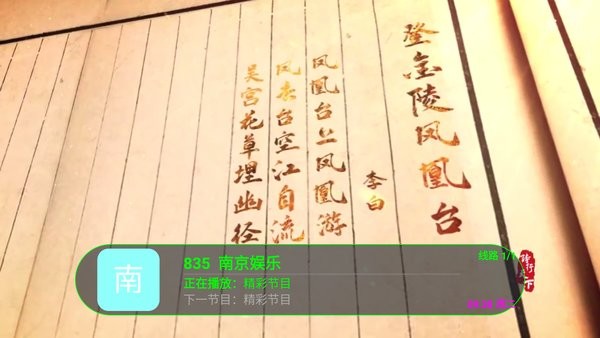 登金陵凤凰台
李白
凤凰台上凤凰游
凤去台空江自流
吴宫花草埋幽径
南
835 南京娱乐
正在播放：精彩节目
下一节目：精彩节目
线路 1/1
诗行天下